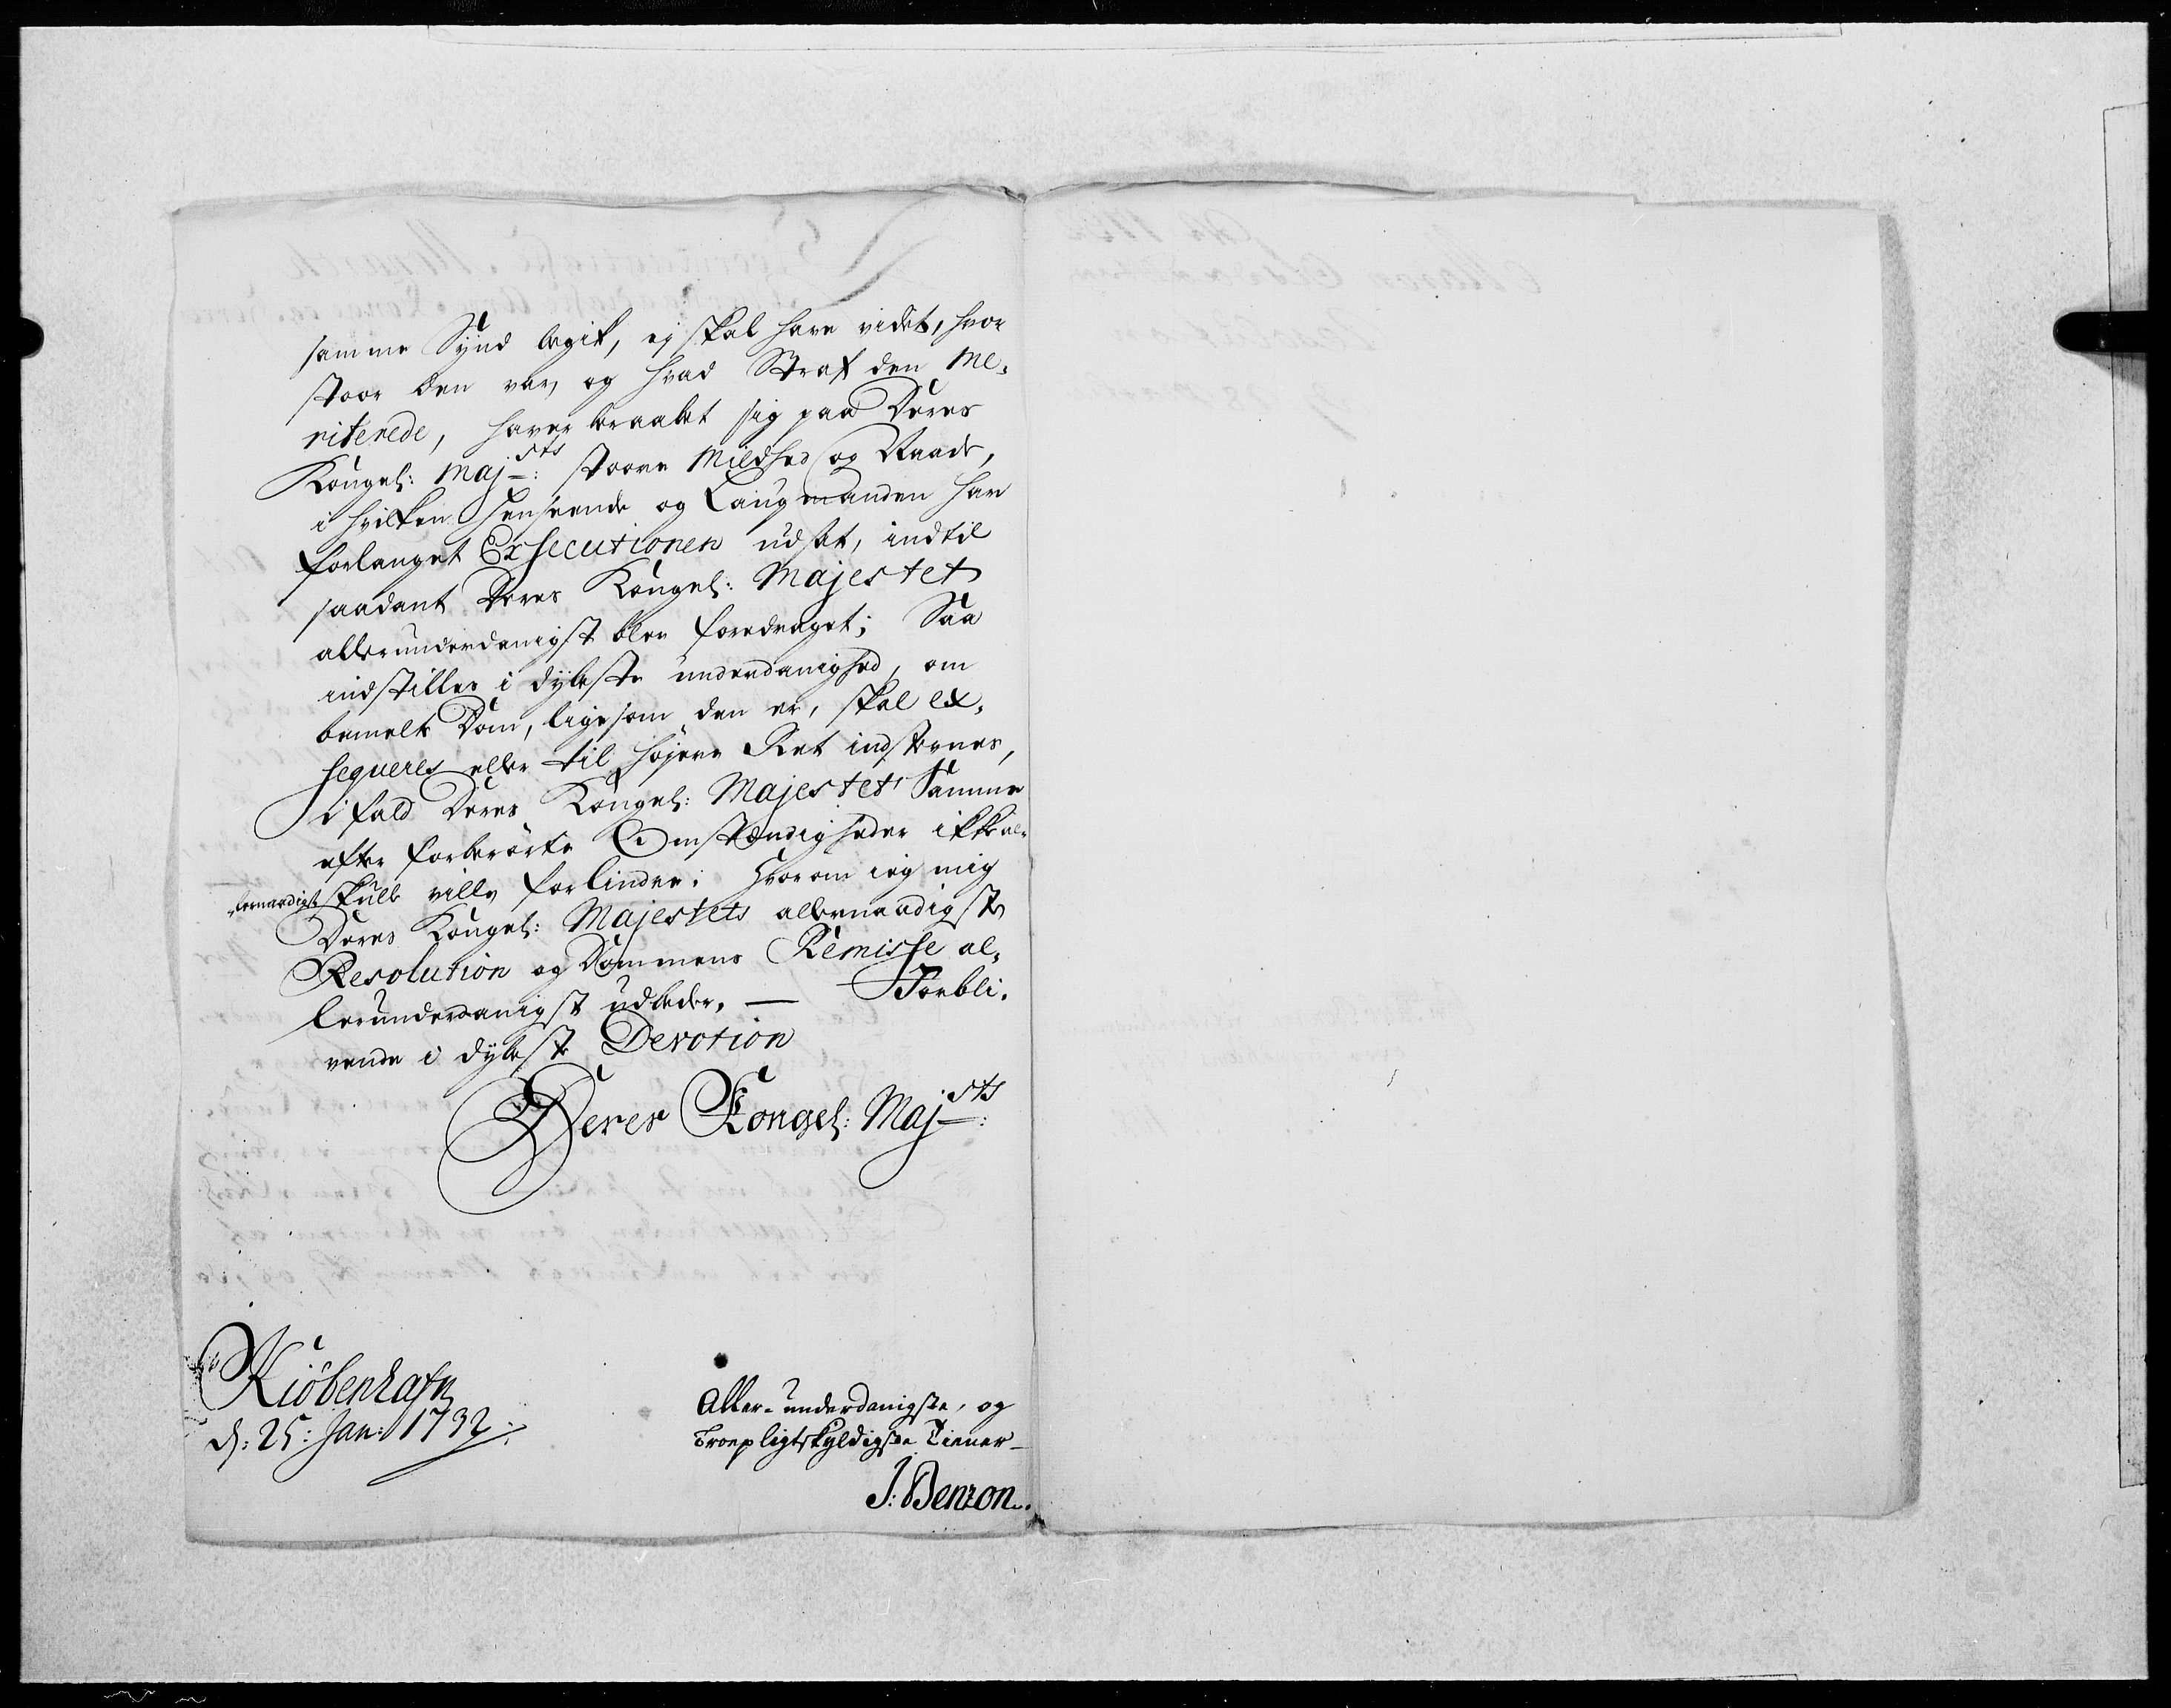 samme Synd begik, ej skal have vidst, hvor
stoor den var, og hvad Straf den me-
riterede, haver beraabet sig paa Deres
Kongel: Maj.sts: stoore Mildhed og Naade,
i hvilken henseende og Laugmanden har
forlanget Exsecutionen udsat, indtil
saadant Deres Kongel: Majestet
allerunderdanigst blev foredraget; Saa
indstilles i dybeste underdanighed, om
bemelte Dom, ligesom den er, skal ex-
sequeres eller til højere Ret indstevnes,
ifald Deres Kongel: Majestet Samme
efter forberørte Omstændigheder ikke al-
lernaadigst skulle ville forlindre: Hvorom jeg mig
Deres Kongel: Majestets allernaadigste
Resolution og Dommens Remisse al-
lerunderdanigst udbeder. — Forbli-
vende i dybeste Devotion
Deres Kongel: Maj.sts:
Kiöbenhafn
d: 25: Jan: 1732
Aller-underdanigste, og
Troepligtskyldigste Tiener
J: Benzon.